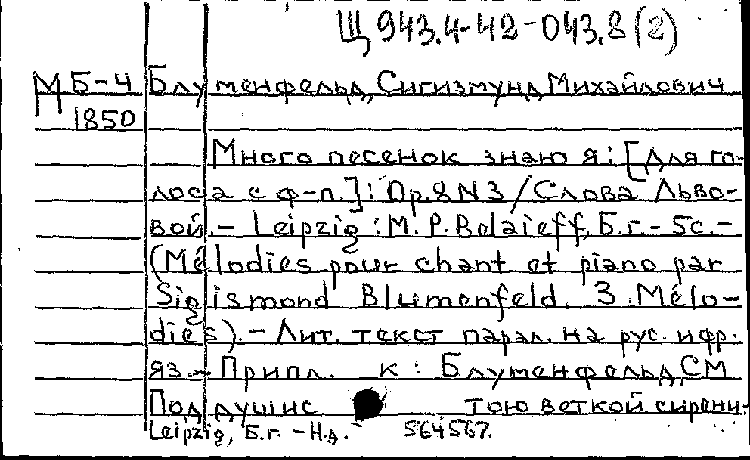 Щ 943.4-42-043.8(2)
МБ-4 Блуменфельд, Сигизмунд Михайлович
1850
Много песенок знаю я: [Для го-
лоса с ф-п.]: Ор.8 N3 / Слова Льво-
вой. - Leipzig : M. P. Belaieff, Б.г. - 5с. -
(Mélodies pour chant et piano par
Sigismond Blumenfeld. 3 Mélo-
dies). - Лит. текст парал. на рус. и фр.
яз. - Припл. к: Блуменфельд, СМ
Под душис тою веткой сирени.
Leipzig, Б.г. - Н.д. 564567.